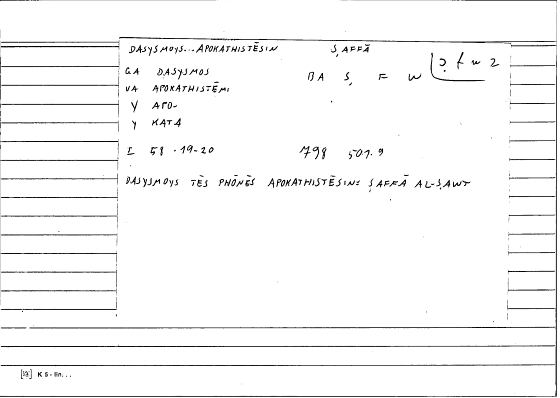 DASYSMOYS... APOKATHISTĒSIN ṢAFFĀ
GA DASYSMOS BA Ṣ F W ṣ f w 2
UA APOKATHISTĒMI
Y APO-
Y KATA
I 58 . 19-20 798 501.9
DASYSMOYS TĒS PHŌNĒS APOKATHISTĒSIN: ṢAFFĀ AL-ṢAWT
K S-